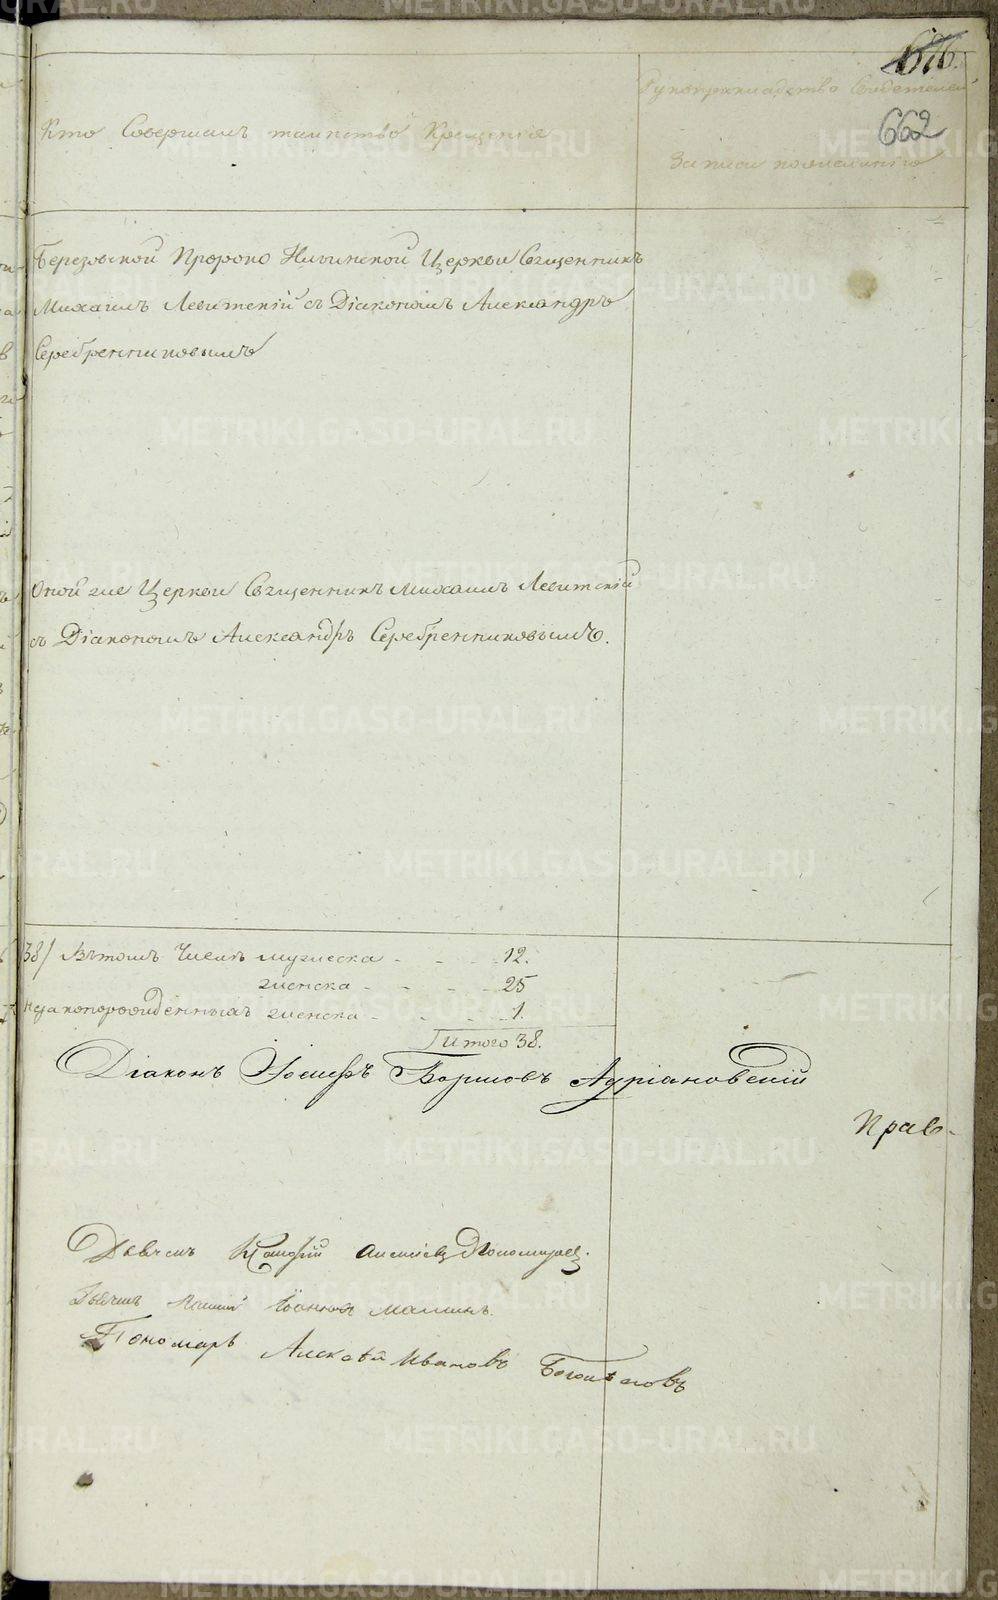 676.
662
Кто Совершалъ таинство Крещенія
Рукоприкладство Свидетелей
Записи по желанію
Березовской Пророко Ильинской Церкви Священникъ
Михаилъ Левитскій съ Діакономъ Александръ
Серебренниковымъ
Оной же Церкви Священникъ Михаилъ Левитскій
съ Діакономъ Александръ Серебренниковымъ.
38/ Вътомъ Числѣ мужеска - - - 12.
женска - - - - 25
незаконорожденныхъ женска - - - 1.
Итого 38.
Діаконъ Іосифъ Адріановскій
Прав-
Дьячекъ
Дьячекъ
Пономарь Алексѣй Ивановъ
METRIKI.GASO-URAL.RU